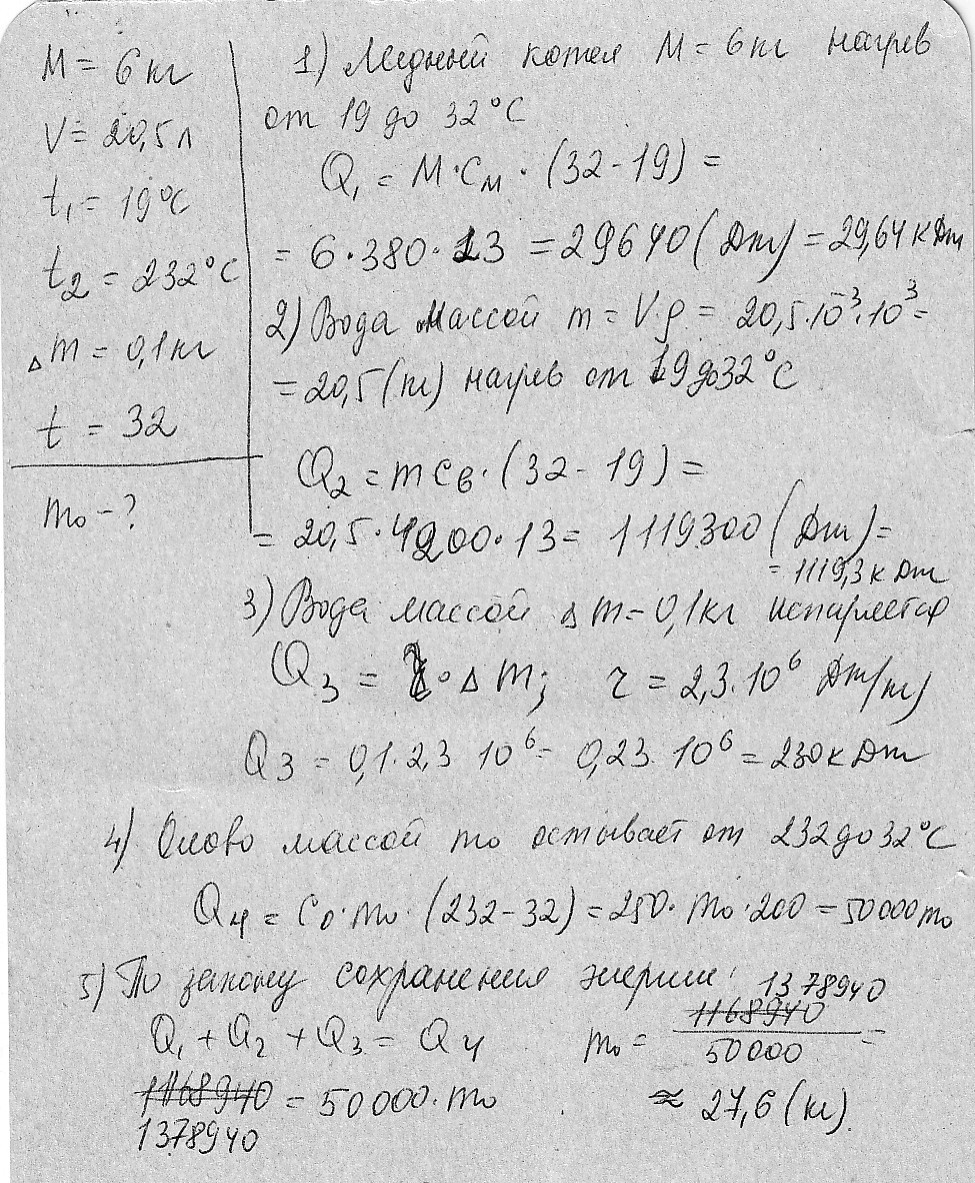 M = 6 кг
V = 20,5 л
t₁ = 19°C
t₂ = 232°C
Δm = 0,1 кг
t = 32
m₀ - ?
1) Медный котел M = 6 кг нагрев
от 19 до 32°C
Q₁ = M·Cм·(32-19) =
= 6·380·13 = 29640 (Дж) = 29,64 кДж
2) Вода массой m = V·ρ = 20,5·10⁻³·10³ =
= 20,5 (кг) нагрев от 19 до 32°C
Q₂ = mCв·(32-19) =
= 20,5·4200·13 = 1119300 (Дж) =
= 1119,3 кДж
3) Вода массой Δm = 0,1 кг испаряется
Q₃ = r·Δm; r = 2,3·10⁶ Дж/кг)
Q₃ = 0,1·2,3 10⁶ = 0,23·10⁶ = 230 кДж
4) Олово массой m₀ остывает от 232 до 32°C
Q₄ = C₀·m₀·(232-32) = 250·m₀·200 = 50000 m₀
5) По закону сохранения энергии:
Q₁ + Q₂ + Q₃ = Q₄
1168940 = 50000·m₀
1378940
1378940
m₀ = 1168940 / 50000 =
≈ 27,6 (кг).